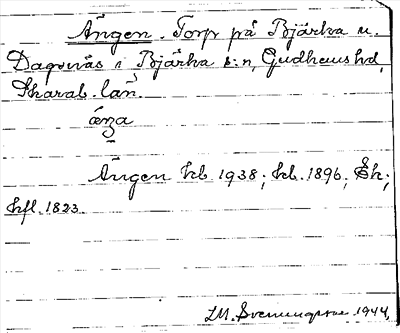 Ängen. Torp på Bjärka u.
Dagsnäs i Bjärka s:n, Gudhems hd,
Skarab. län.
äŋa
Ängen kb. 1938; kb. 1896; Ek;
hfl. 1823.
I.M. Svenningsson 1944.